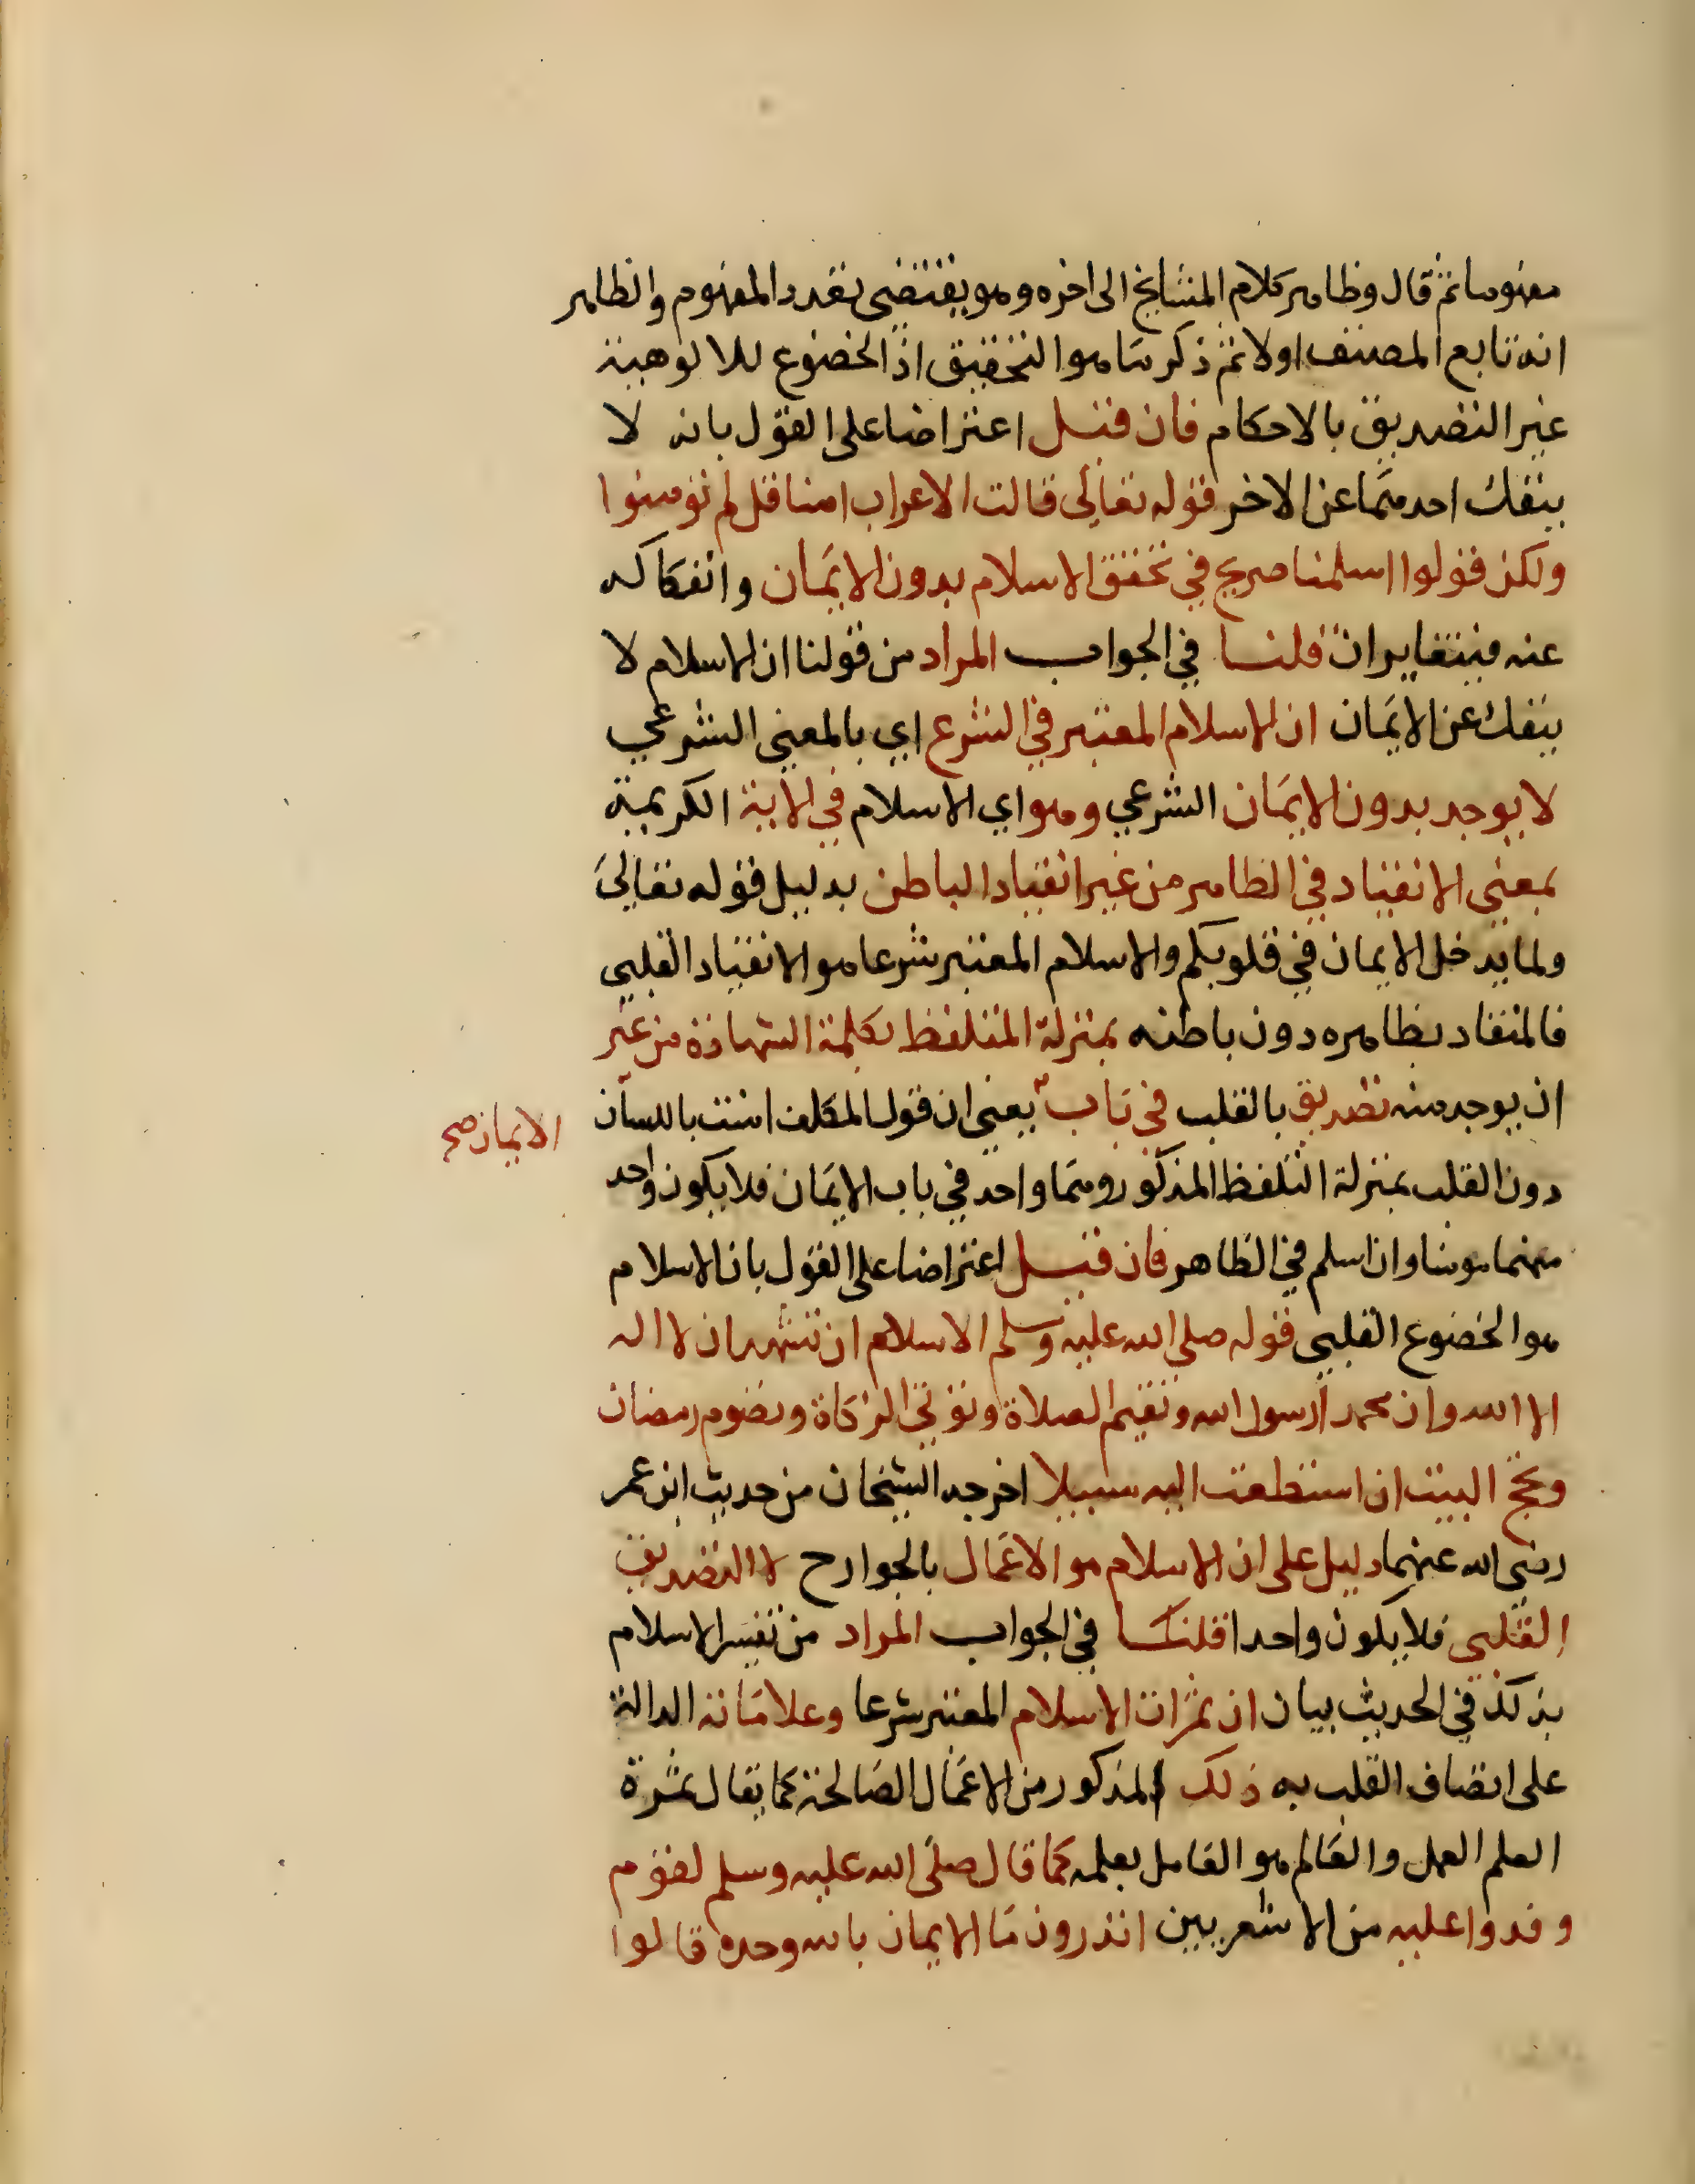 مفهوما ثم قال وظاهر كلام المشايخ الى اخره وهو يقتضى تعدد المفهوم والظاهر
انه تابع المصنف اولا ثم ذكر ما هو التحقيق اذ الخضوع للالوهية
غير التصديق بالاحكام فان قيل اعتراضا على القول بانه لا
ينفك احدهما عن الاخر قوله تعالى قالت الاعراب امنا قل لم تومنوا
ولكن قولوا اسلمنا صريح في تحقق الاسلام بدون الايمان وانفكاكه
عنه فيتغايران قلنا في الجواب المراد من قولنا ان الاسلام لا
ينفك عن الايمان ان الاسلام المعتبر في الشرع اي بالمعنى الشرعي
لا يوجد بدون الايمان الشرعي وهو اي الاسلام في الاية الكريمة
بمعنى الانقياد في الظاهر من غير انقياد الباطن بدليل قوله تعالى
ولما يدخل الايمان في قلوبكم والاسلام المعتبر شرعا هو الانقياد القلبي
فالمنقاد بظاهره دون باطنه بمنزلة المتلفظ بكلمة الشهادة من غير
ان يوجد منه تصديق بالقلب في باب يعني ان قول المكلف امنت باللسان
الايمان صح
دون القلب بمنزلة التلفظ المذكور وهما واحد في باب الايمان فلا يكون واحد
منهما مومنا وان اسلم في الظاهر فان قيل اعتراضا على القول بان الاسلام
هو الخضوع القلبي قوله صلى الله عليه وسلم الاسلام ان تشهد ان لا اله
الا الله وان محمدا رسول الله وتقيم الصلاة وتوتي الزكاة وتصوم رمضان
وتحج البيت ان استطعت اليه سبيلا اخرجه الشيخان من حديث ابن عمر
رضي الله عنهما دليل على ان الاسلام هو الاعمال بالجوارح لا التصديق
القلبي فلا يكون واحدا قلنا في الجواب المراد من تفسير الاسلام
بذلك في الحديث بيان ان ثمرات الاسلام المعتبر شرعا وعلاماته الدالة
على اتصاف القلب به ذلك المذكور من الاعمال الصالحة كما يقال ثمرة
العلم العمل والعالم هو العامل بعلمه كما قال صلى الله عليه وسلم لقوم
وفدوا عليه من الاشعريين اتدرون ما الايمان بالله وحده قالوا